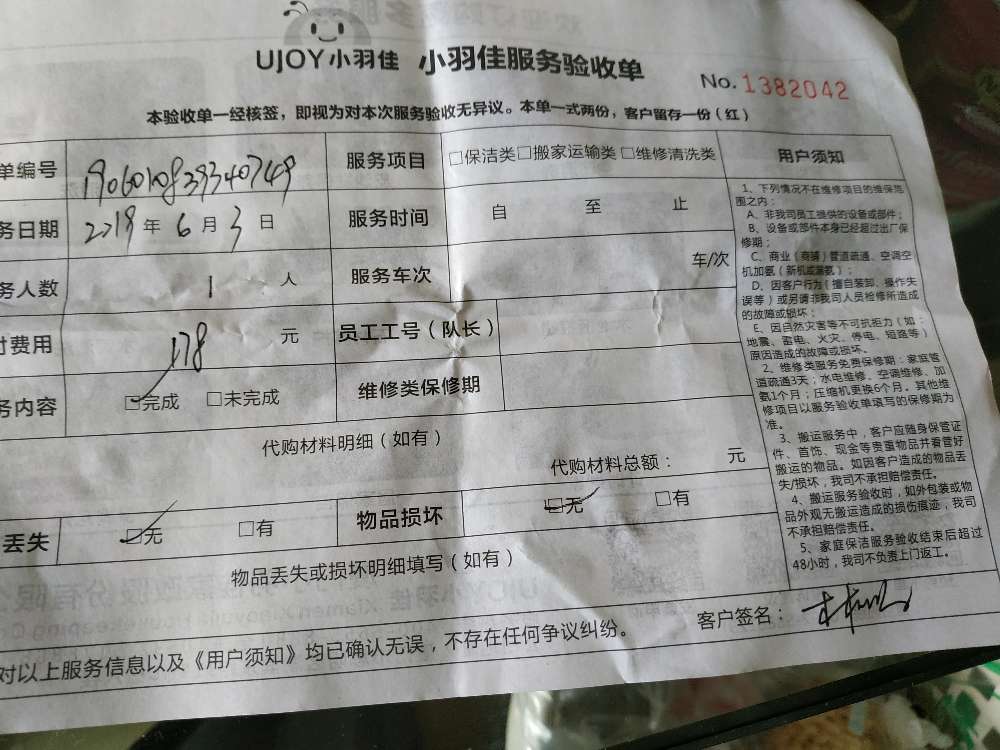 UJOY小羽佳 小羽佳服务验收单
No. 1382042
本验收单一经核签，即视为对本次服务验收无异议。本单一式两份，客户留存一份（红）
单编号 服务项目 □保洁类□搬家运输类□维修清洗类
务日期 2019年6月3日 服务时间 自 至 止
务人数 1 人 服务车次 车/次
付费用 178 元 员工工号（队长）
务内容 □完成 □未完成 维修类保修期
代购材料明细（如有）
代购材料总额： 元
丢失 □无 □有 物品损坏 □无 □有
物品丢失或损坏明细填写（如有）
对以上服务信息以及《用户须知》均已确认无误，不存在任何争议纠纷。
客户签名：
用户须知
1、下列情况不在维修项目的维保范
围之内：
A、非我司员工提供的设备或部件；
B、设备或部件本身已经超过出厂保
修期；
C、商业（商铺）管道疏通、空调空
机加氨（新机或漏氨）；
D、因客户行为（擅自装卸、操作失
误等）或另请非我司人员检修所造成
的故障或损坏；
E、因自然灾害等不可抗拒力（如：
地震、雷电、火灾、停电、短路等）
原因造成的故障或损坏。
2、维修类服务免费保修期：家庭管
道疏通3天；水电维修、空调维修、加
氨1个月；压缩机更换6个月。其他维
修项目以服务验收单填写的保修期为
准。
3、搬运服务中，客户应随身保管证
件、首饰、现金等贵重物品并看管好
搬运的物品。如因客户造成的物品丢
失/损坏，我司不承担赔偿责任。
4、搬运服务验收时，如外包装或物
品外观无搬运造成的损伤痕迹，我司
不承担赔偿责任。
5、家庭保洁服务验收结束后超过
48小时，我司不负责上门返工。